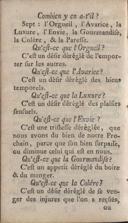 Combien y en a-t'il ?
Sept : l'Orgueil, l'Avarice, la
Luxure, l'Envie, la Gourmandise,
la Colère, & la Paresse.
Qu'est-ce que l'Orgueil ?
C'est un désir déréglé de l'empor-
ter sur les autres.
Qu'est-ce que l'Avarice ?
C'est un désir déréglé des biens
temporels.
Qu'est-ce que la Luxure ?
C'est un désir déréglé des plaisirs
sensuels.
Qu'est-ce que l'Envie ?
C'est une tristesse déréglée, que
nous avons du bien de notre Pro-
chain, parce que son bien surpasse,
ou diminue celui qui est en nous.
Qu'est-ce que la Gourmandise ?
C'est un appetit déréglé du boire
& du manger.
Qu'est-ce que la Colère ?
C'est un désir déréglé de se ven-
ger des injures que l'on a reçues,
ou